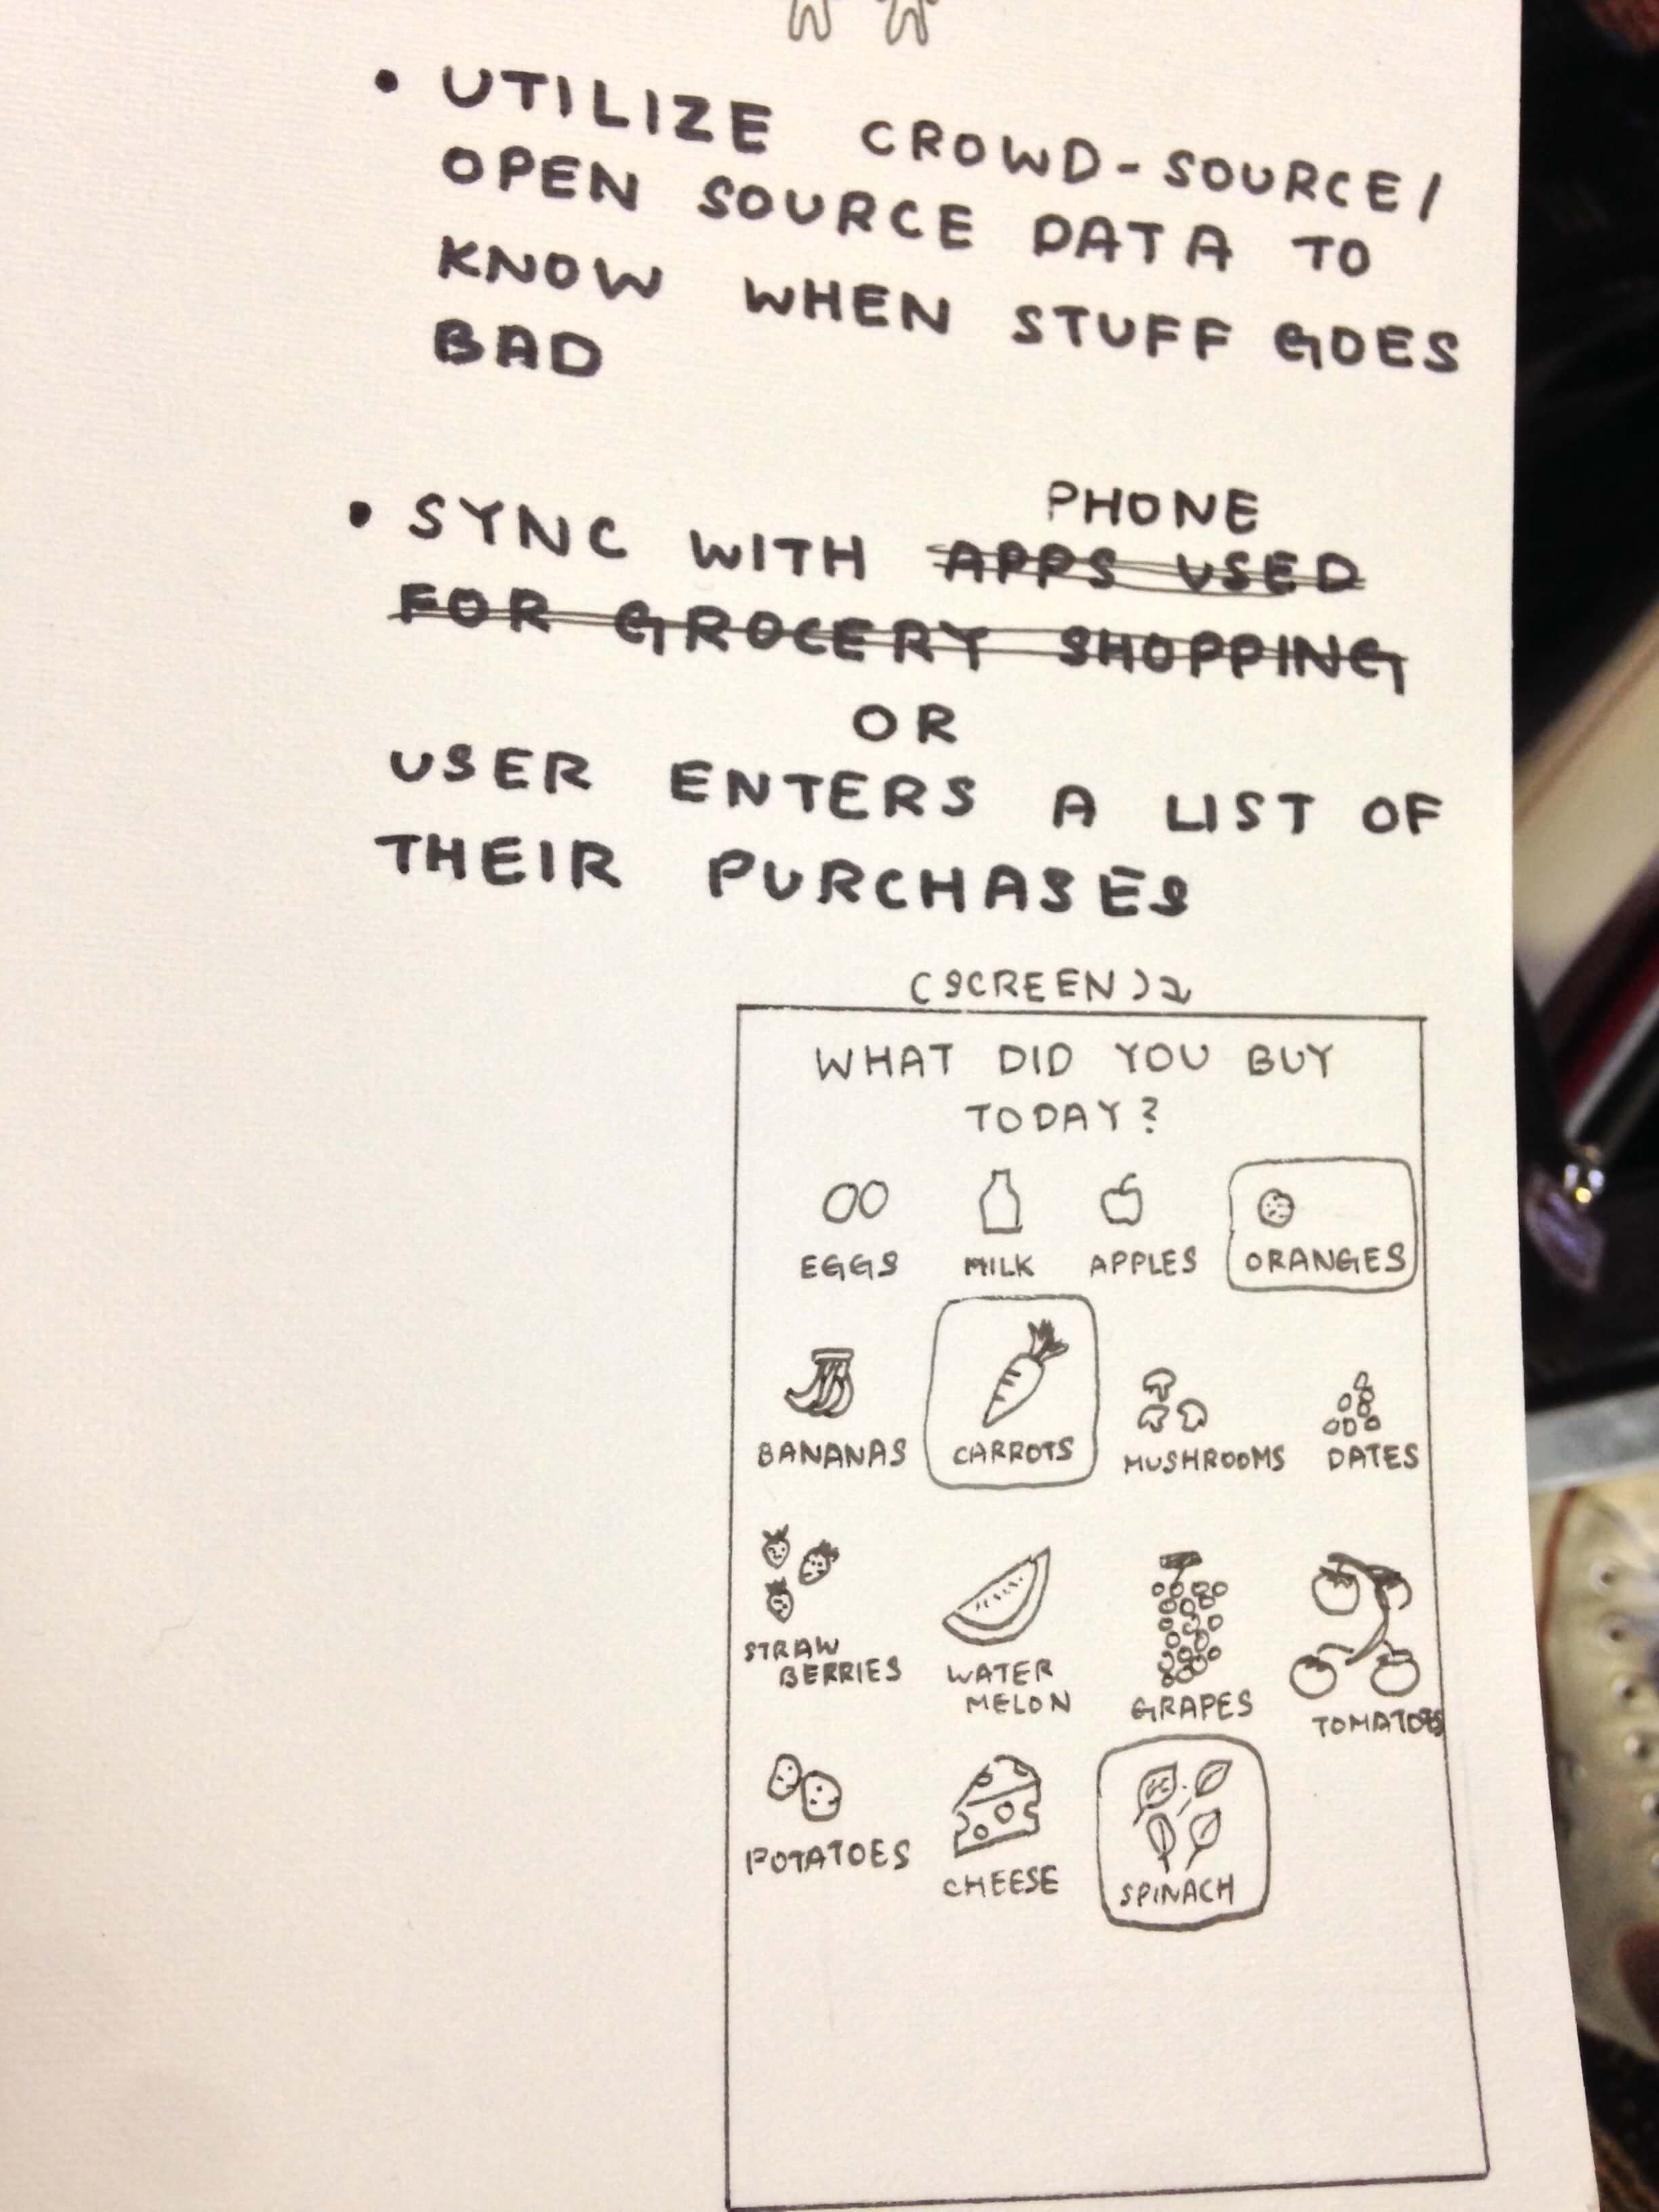 • UTILIZE CROWD-SOURCE/
OPEN SOURCE DATA TO
KNOW WHEN STUFF GOES
BAD
PHONE
• SYNC WITH APPS USED
FOR GROCERY SHOPPING
OR
USER ENTERS A LIST OF
THEIR PURCHASES
(SCREEN)
WHAT DID YOU BUY
TODAY?
EGGS MILK APPLES ORANGES
BANANAS CARROTS MUSHROOMS DATES
STRAW
BERRIES
WATER
MELON
GRAPES
TOMATOES
POTATOES
CHEESE
SPINACH